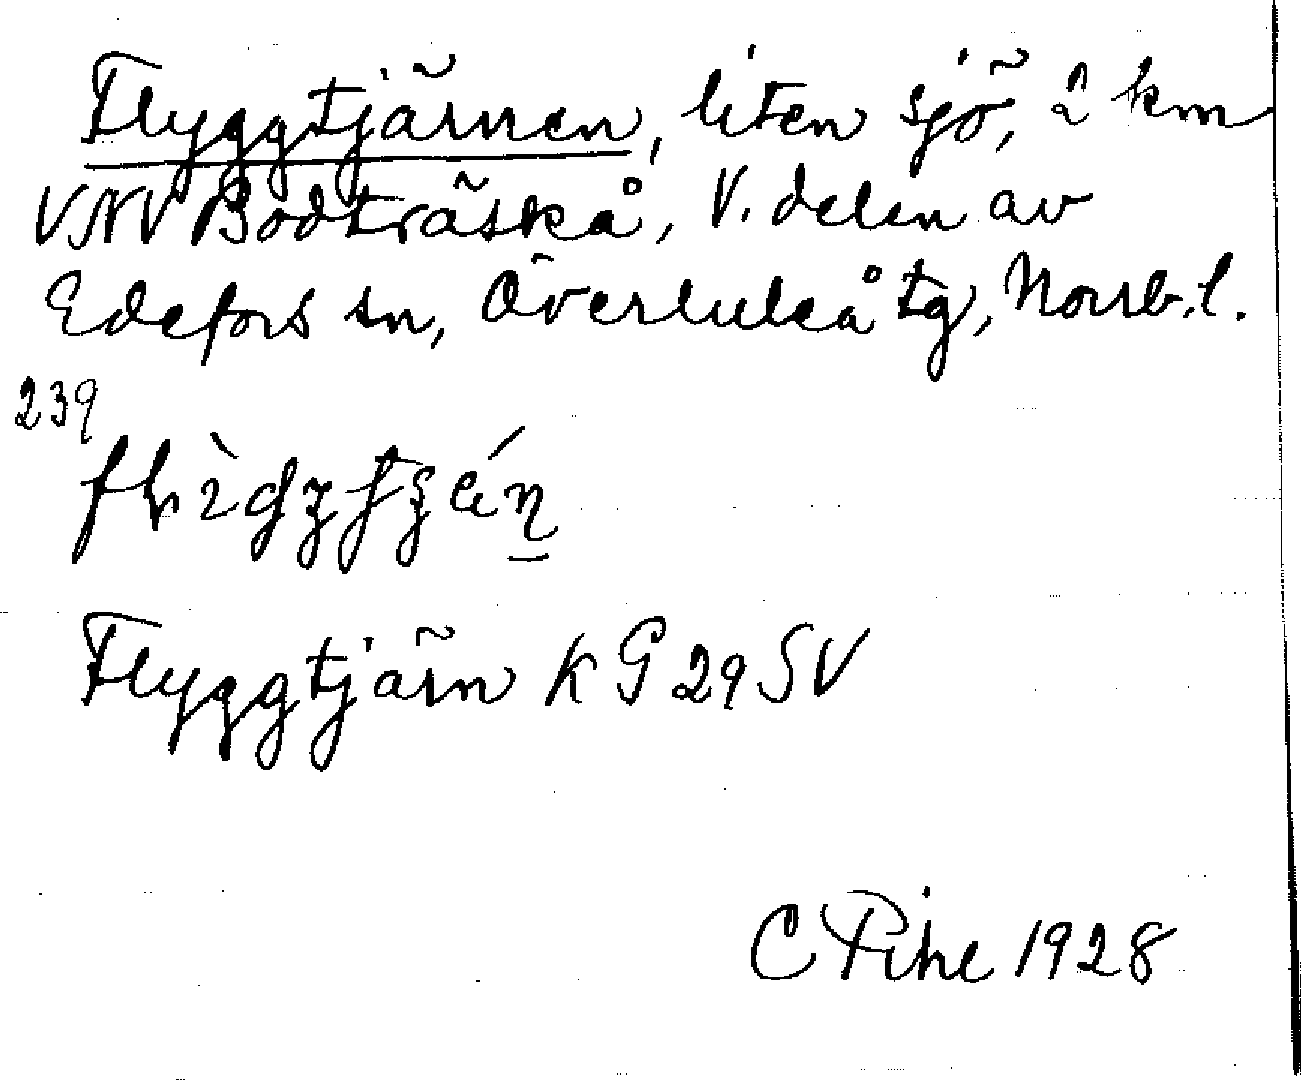 Flyggtjärnen, liten sjö, 2 km
VNV Bodträskå, V. delen av
Edefors sn, Överluleå tg, Norrb. l.
239
Flyggtjärn K G 29 SV
C Pihl 1928